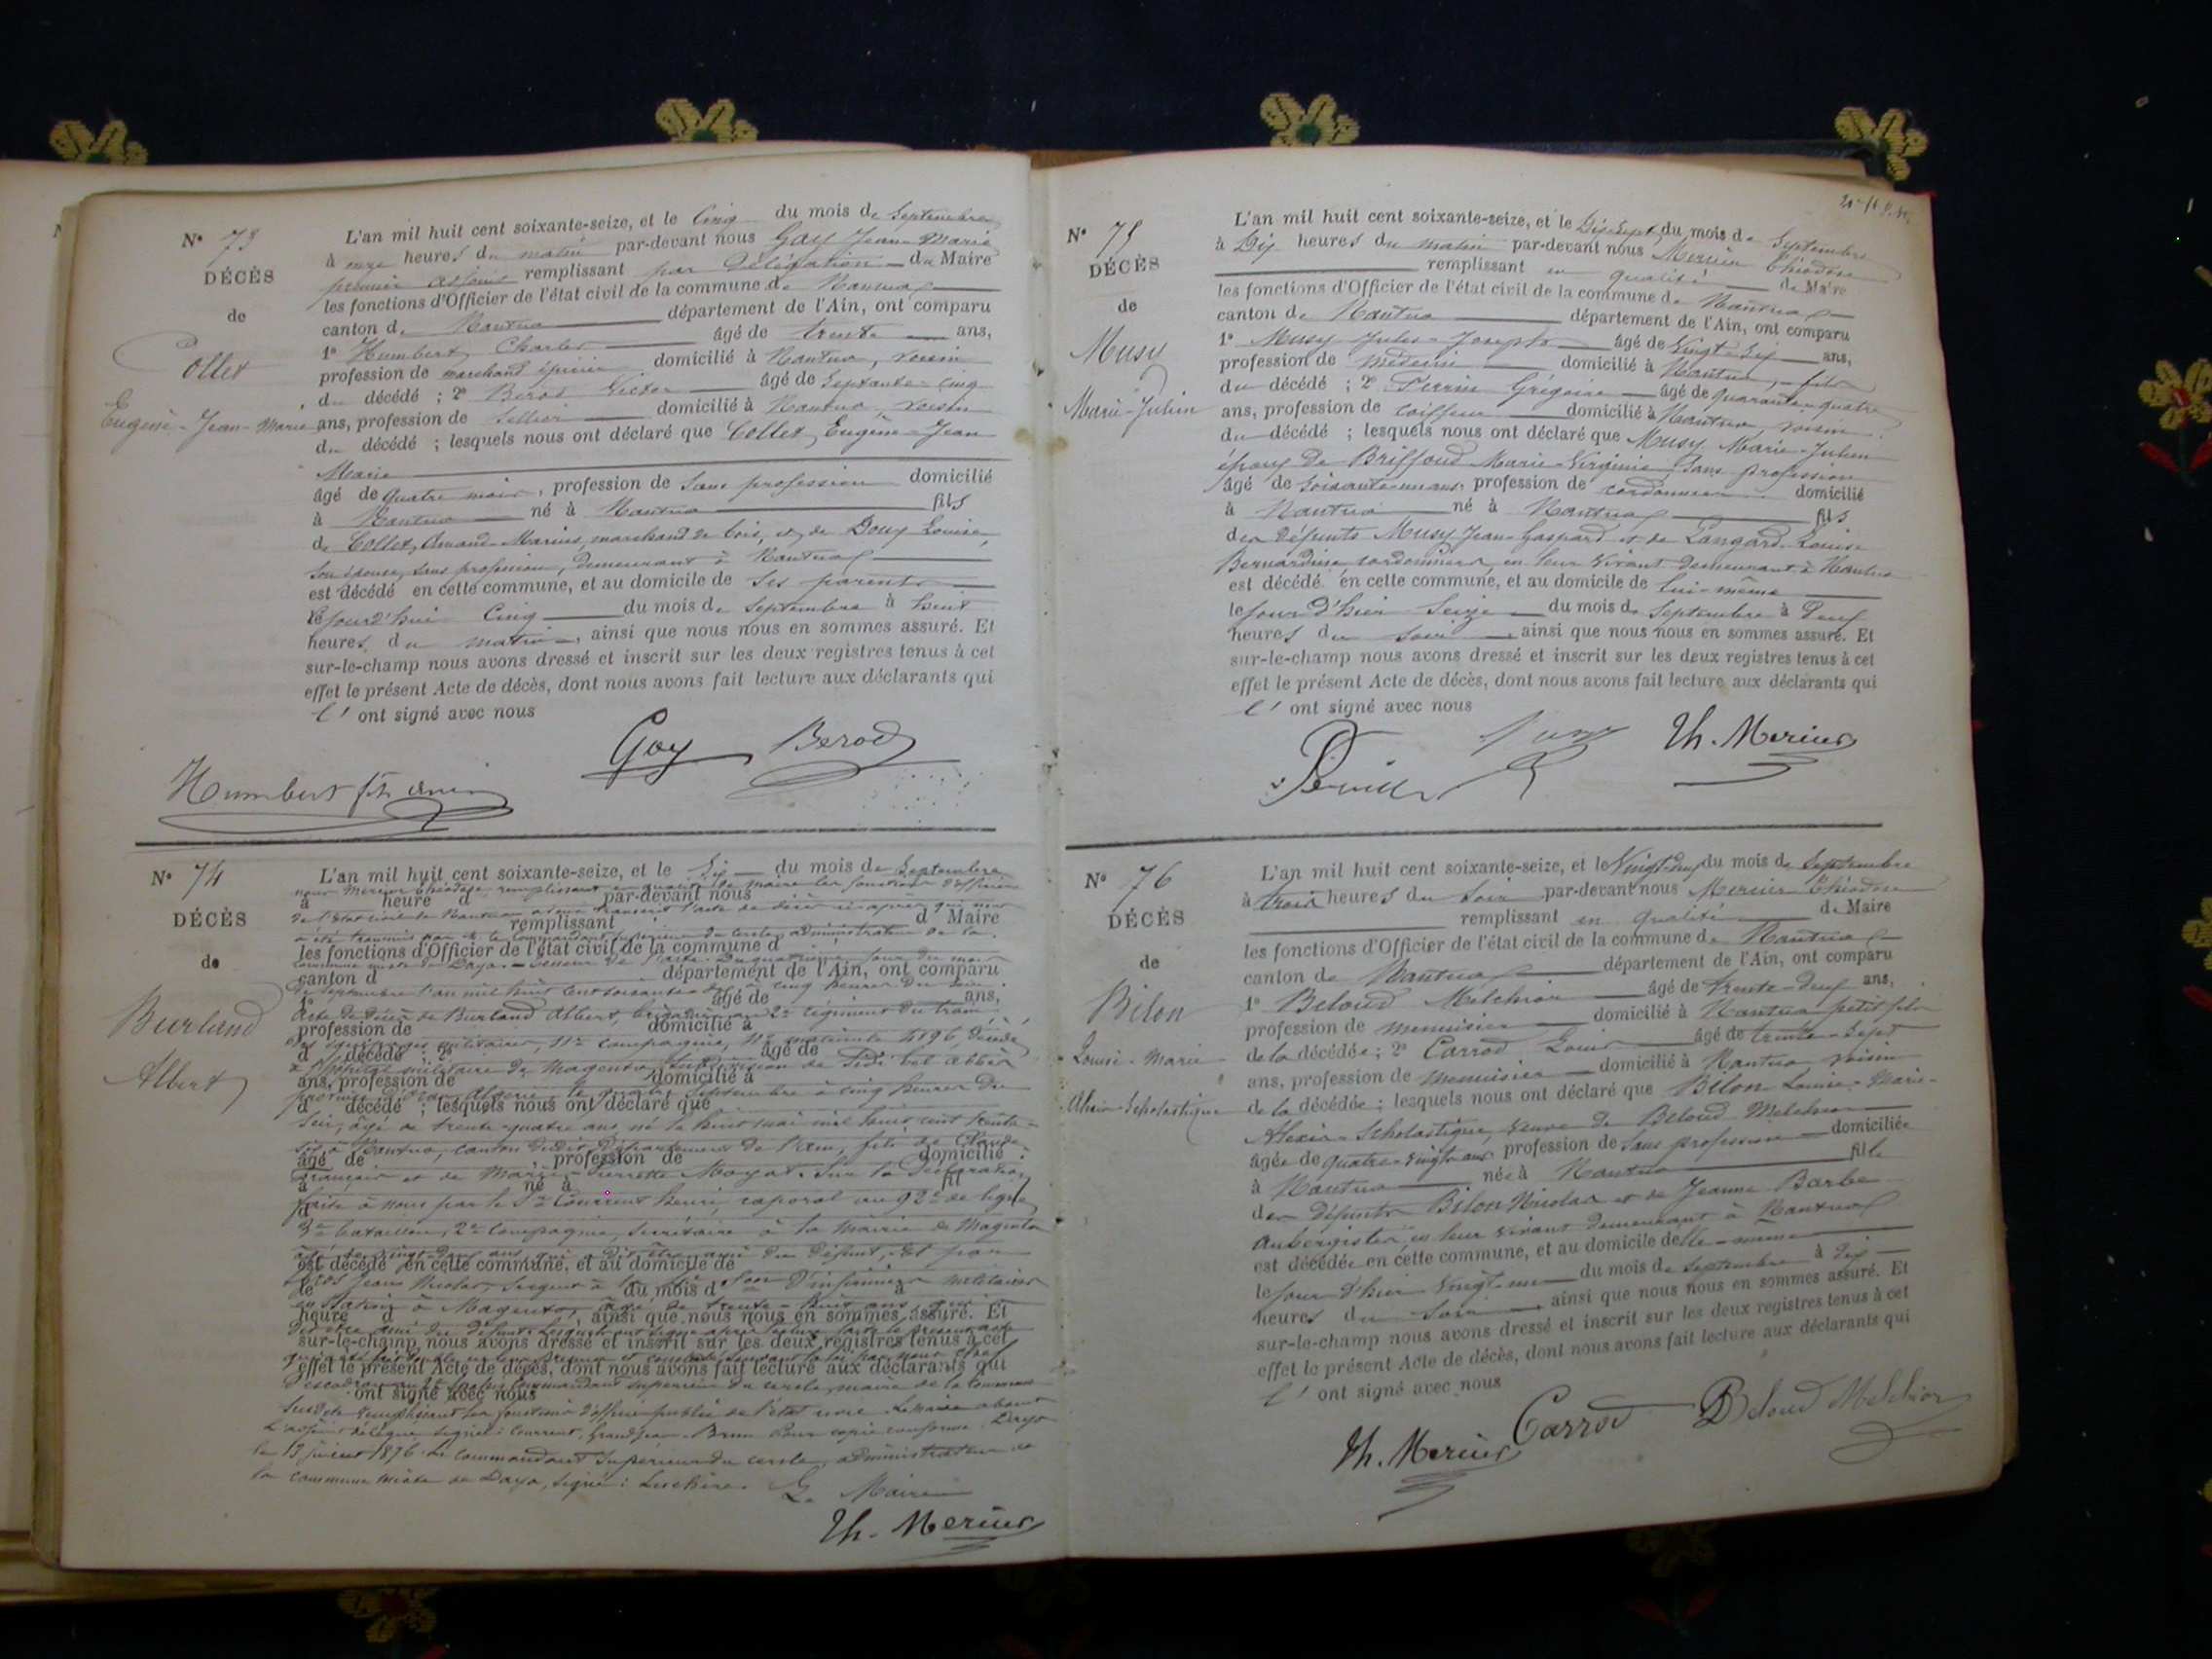 N° 73
DÉCÈS
de
Collet
Eugène-Jean-Marie
L'an mil huit cent soixante-seize, et le Cinq du mois de Septembre
à onze heures du matin par-devant nous Gay Jean-Marie
premier adjoint remplissant par délégation du Maire
les fonctions d'Officier de l'état civil de la commune de Nantua
canton de Nantua département de l'Ain, ont comparu
1° Humbert Charles âgé de trente ans,
profession de marchand épicier domicilié à Nantua, voisin
du décédé ; 2° Berod Victor âgé de Septante-cinq
ans, profession de Sellier domicilié à Nantua, voisin
du décédé ; lesquels nous ont déclaré que Collet, Eugène-Jean
Marie
âgé de quatre mois, profession de Sans profession domicilié
à Nantua né à Nantua fils
de Collet, Amand-Marius, marchand de bois, et de Douy Louise,
son épouse, sans profession, demeurant à Nantua
est décédé en cette commune, et au domicile de ses parents
le jourd'hui Cinq du mois de Septembre à huit
heures du matin, ainsi que nous nous en sommes assuré. Et
sur-le-champ nous avons dressé et inscrit sur les deux registres tenus à cet
effet le présent Acte de décès, dont nous avons fait lecture aux déclarants qui
l' ont signé avec nous
Gay Berod
Humbert
N° 74
DÉCÈS
de
Burland
Albert
L'an mil huit cent soixante-seize, et le Six du mois de Septembre
nous Mercier Théodore remplissant en qualité de Maire les fonctions d'officier
à heure d par-devant nous
de l'Etat civil de Nantua avons transcrit l'acte de décès ci-après qui nous
remplissant d Maire
a été transmis par M. le Commandant Supérieur du Cercle, administrateur de la
les fonctions d'Officier de l'état civil de la commune d
commune mixte de Daya.
canton d département de l'Ain, ont comparu
de septembre l'an mil huit cent soixante à cinq heures du soir
1° âgé de ans,
Acte de décès de Burland Albert, brigadier au 2e régiment du train
profession de domicilié à
des équipages militaires, 11e compagnie, N° matricule 4896, décédé
d décédé ; 2° âgé de
à l'hôpital militaire de Magenta, Subdivision de Sidi bel Abbès
ans, profession de domicilié à
province d'Oran Algérie le quatre Septembre à cinq heures du
d décédé ; lesquels nous ont déclaré que
soir, âgé de trente-quatre ans, né le huit mai mil huit cent trente-
à Nantua, canton dudit, Département de l'Ain, fils de Claude
âgé de profession de domicilié
François et de Marie-Pierrette Moyat. Sur la déclaration
à né à fil
faite à nous par le Sr Courrent Henri, caporal au 92e de ligne
d
3e bataillon, 2e Compagnie, Secrétaire à la Mairie de Magenta
âgé de vingt-deux ans, qui a dit être ami du défunt, et par
est décédé en cette commune, et au domicile de
Jean Nicolas, Sergent à la d'infirmiers militaires
le du mois d à
en station à Magenta, âgé de trente-huit ans, qui
heure d , ainsi que nous nous en sommes assuré. Et
dit être ami du défunt.
sur-le-champ nous avons dressé et inscrit sur les deux registres tenus à cet
effet le présent Acte de décès, dont nous avons fait lecture aux déclarants qui
d'escadron Commandant supérieur du cercle, maire de la Commune
ont signé avec nous
susdite remplissant les fonctions d'officier public de l'état civil. Le maire absent
L'adjoint délégué signé: Courrent, Grandjean, Brun. Pour copie conforme, Daya
le 1876. Le Commandant Supérieur du cercle, administrateur de
la commune mixte de Daya, signé:
Le Maire
Th. Mercier
N° 75
DÉCÈS
de
Musy
Marie-Julien
L'an mil huit cent soixante-seize, et le Dix-Sept du mois de Septembre
à Dix heures du matin par-devant nous Mercier Théodore
remplissant en qualité de Maire
les fonctions d'Officier de l'état civil de la commune de Nantua
canton de Nantua département de l'Ain, ont comparu
1° Musy Jules-Joseph âgé de Vingt-six ans,
profession de médecin domicilié à Nantua, fils
du décédé ; 2° Perrin Grégoire âgé de quarante-quatre
ans, profession de coiffeur domicilié à Nantua voisin
du décédé ; lesquels nous ont déclaré que Musy, Marie-Julien
époux de Briffoud Marie-Virginie, sans profession
âgé de soixante-un ans, profession de cordonnier domicilié
à Nantua né à Nantua fils
des défunts Musy Jean-Gaspard et de Langard Louise
Bernardine cordonniers, en leur vivant demeurant à Nantua
est décédé en cette commune, et au domicile de lui-même
le jour d'hier Seize du mois de Septembre à neuf
heures du soir, ainsi que nous nous en sommes assuré. Et
sur-le-champ nous avons dressé et inscrit sur les deux registres tenus à cet
effet le présent Acte de décès, dont nous avons fait lecture aux déclarants qui
l' ont signé avec nous
Perrin Musy Th. Mercier
N° 76
DÉCÈS
de
Bilon
Louise-Marie-
Alexis-Scholastique
L'an mil huit cent soixante-seize, et le Vingt-deux du mois de Septembre
à trois heures du soir par-devant nous Mercier Théodore
remplissant en qualité de Maire
les fonctions d'Officier de l'état civil de la commune de Nantua
canton de Nantua département de l'Ain, ont comparu
1° Beloud Melchior âgé de trente-deux ans,
profession de menuisier domicilié à Nantua petit-fils
de la décédée ; 2° Carrod Louis âgé de trente-sept
ans, profession de menuisier domicilié à Nantua voisin
de la décédée ; lesquels nous ont déclaré que Bilon Louise-Marie-
Alexis-Scholastique, veuve de Beloud Melchior
âgée de quatre-vingts ans profession de sans profession domiciliée
à Nantua née à Nantua fille
des défunts Bilon Nicolas et de Jeanne Barbe
aubergistes en leur vivant demeurant à Nantua
est décédée en cette commune, et au domicile d'elle-même
le jour d'hier vingt-un du mois de Septembre à dix
heures du soir, ainsi que nous nous en sommes assuré. Et
sur-le-champ nous avons dressé et inscrit sur les deux registres tenus à cet
effet le présent Acte de décès, dont nous avons fait lecture aux déclarants qui
l' ont signé avec nous
Th. Mercier Carrod Beloud Melchior